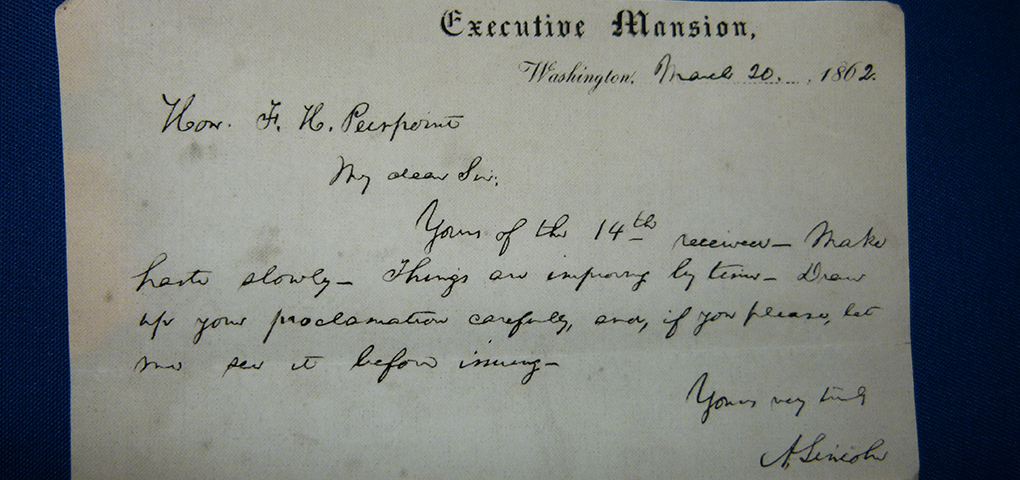 Executive Mansion,
Washington, March 20. , 1862.
Hon. F. H. Peirpoint
My dear Sir:
Yours of the 14th received— Make
haste slowly— Things are improving by time— Draw
up your proclamation carefully, and, if you please, let
me see it before issuing—
Yours very truly
A. Lincoln